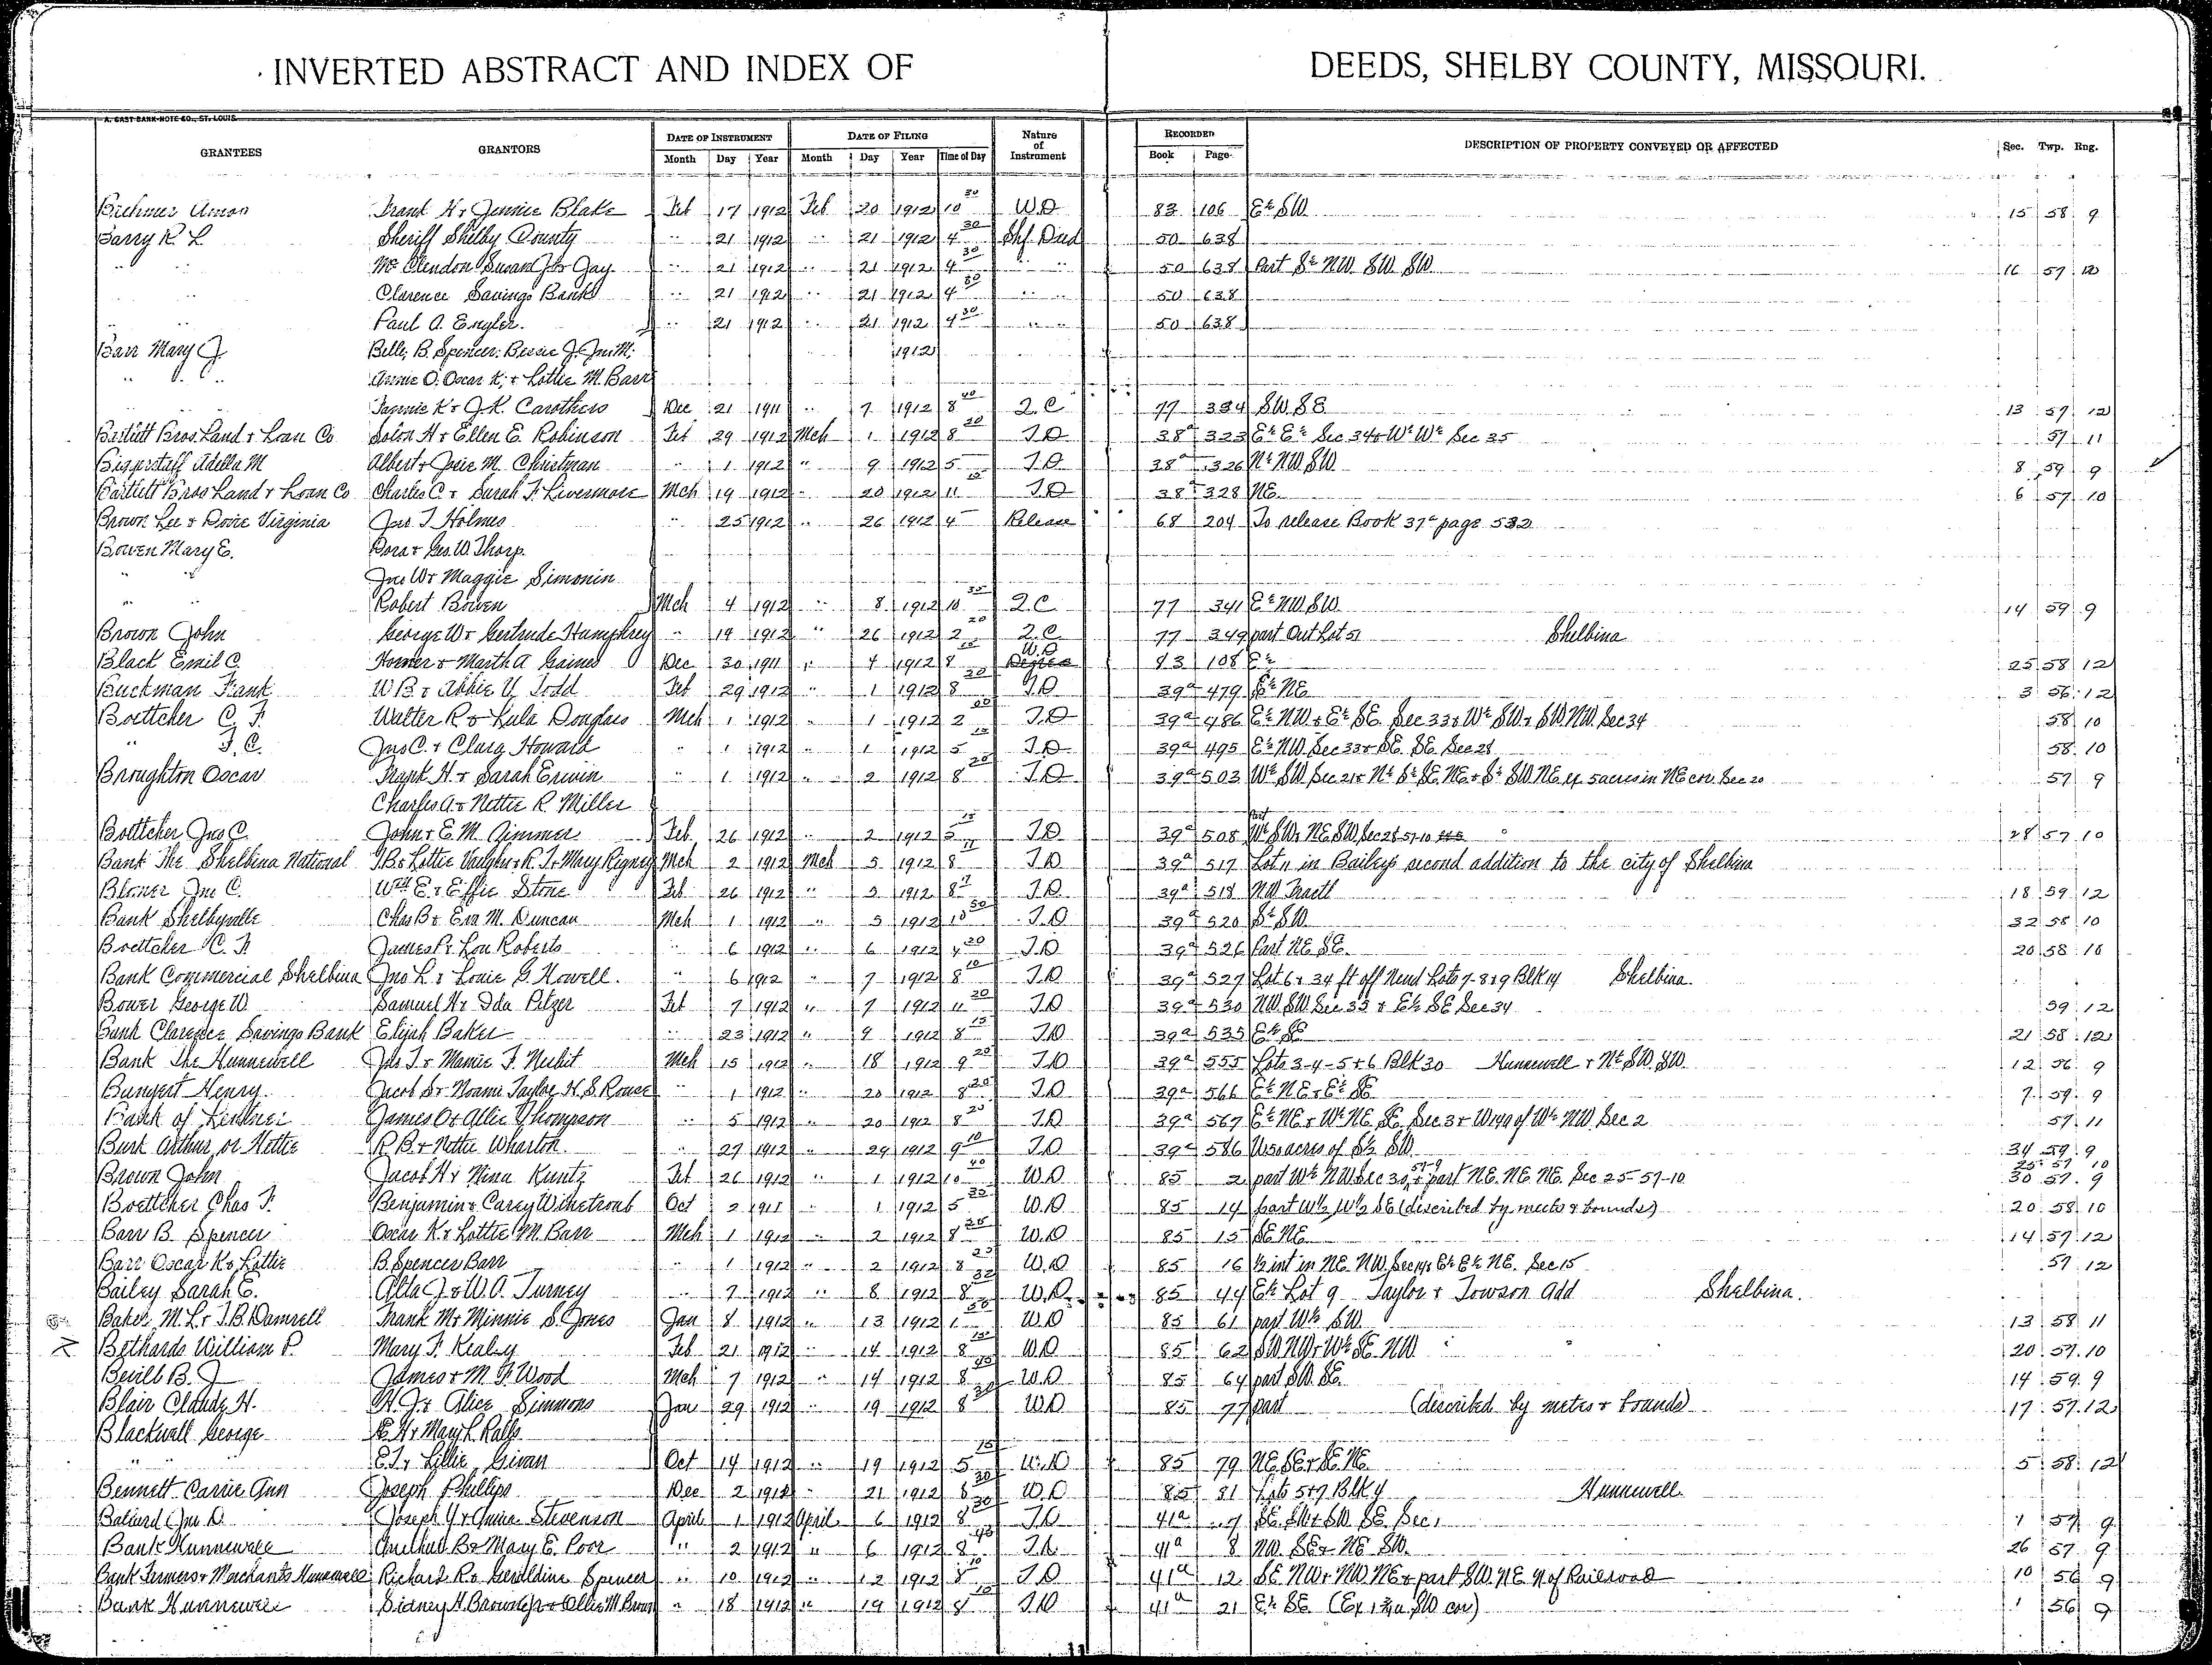 INVERTED ABSTRACT AND INDEX OF DEEDS, SHELBY COUNTY, MISSOURI.
A. GAST BANK-NOTE CO., ST. LOUIS.
GRANTEES GRANTORS DATE OF INSTRUMENT DATE OF FILING Nature of Instrument RECORDED DESCRIPTION OF PROPERTY CONVEYED OR AFFECTED Sec. Twp. Rng.
Month Day Year Month Day Year Time of Day Book Page
Frank H & Jennie Blake Feb 17 1912 Feb 20 1912 10 30 W.D 83 106 E½ SW 15 58 9
Barry R. L Sheriff Shelby County " 21 1912 " 21 1912 4 30 Shf. Deed 50 638
" McClendon Susan J & Jay " 21 1912 " 21 1912 4 30 " " 50 638 Part S½ NW SW SW 16 57 12
" Clarence Savings Bank " 21 1912 " 21 1912 4 30 " " 50 638
" Paul A. Engler. " 21 1912 " 21 1912 4 30 " " 50 638
Barr Mary J. Belle, B. Spencer; Bessie J. Smith; 1912
" " " Annie O; Oscar K; & Lottie M. Barr
" Fannie K & J.K. Carothers Dec 21 1911 " 7 1912 8 40 Q.C 77 334 SW SE 13 57 12
Bartlett Bros. Land & Loan Co Solon H & Ellen E. Robinson Feb 29 1912 Mch 1 1912 8 20 T.D 38a 323 E½ E½ Sec 34 & W½ W½ Sec 35 57 11
Biggerstaff Adella M Albert & Josie M. Christman " 1 1912 " 9 1912 5 T.D 38a 326 N½ NW SW 8 59 9
Bartlett Bros Land & Loan Co Charles C & Sarah F. Livermore Mch 19 1912 " 20 1912 11 T.D 38a 328 NE 6 57 10
Brown Lee & Dovie Virginia Jas. T. Holmes " 25 1912 " 26 1912 4 Release 68 204 To release Book 37a page 532
Bowen Mary E. Dora & Geo. W. Thorp.
" " Jno W & Maggie Simonin
" " Robert Bowen Mch 4 1912 " 8 1912 10 35 Q.C 77 341 E½ NW SW 14 59 9
Brown John George W & Gertrude Humphrey " 19 1912 " 26 1912 2 20 Q.C 77 349 part Out Lot 51 Shelbina
Black Emil C. Homer & Martha Gaines Dec 30 1911 " 4 1912 8 W.D 83 108 E½ 25 58 12
Buckman Frank W B & Abbie Y. Todd Feb 29 1912 " 1 1912 8 30 T.D 39a 479 E½ NE 3 56 12
Boettcher C. F. Walter R & Lula Douglass Mch 1 1912 " 1 1912 2 T.D 39a 486 E½ NW & E½ SE Sec 33 & W½ SW & SW NW Sec 34 58 10
" F. C. Jno C. & Clara Howard " 1 1912 " 1 1912 5 T.D 39a 495 E½ NW Sec 33 & SE SE Sec 28 58 10
Broughton Oscar Frank H. & Sarah Erwin " 1 1912 " 2 1912 8 20 T.D 39a 503 W½ SW Sec 21 & N½ S½ SE NE & S½ SW NE ex 5 acres in NE cor. Sec 20 57 9
Charles A. & Nettie R Miller
Boettcher Jno C. John & E. M. Zimmer Feb 26 1912 " 2 1912 5 15 T.D 39a 508 Part W½ SW & NE SW Sec 28 57-10 28 57 10
Bank The Shelbina National J B & Lottie Vaughn & R. T. & Mary Rigney Mch 2 1912 Mch 5 1912 8 T.D 39a 517 Lot 11 in Bailey's second addition to the city of Shelbina
Jno C. Wm E & Effie Stone Feb 26 1912 " 5 1912 8 T.D 39a 518 NW Fractl 18 59 12
Bank Shelbyville Chas B & Eva M. Duncan Mch 1 1912 " 5 1912 10 50 T.D 39a 520 S½ SW 32 58 10
Boettcher C. F. James P & Lou Roberts " 6 1912 " 6 1912 4 20 T.D 39a 526 Part NE SE 20 58 10
Bank Commercial Shelbina Jno L. & Louie G. Howell. " 6 1912 " 7 1912 8 10 T.D 39a 527 Lot 6 & 34 ft off N end Lots 7-8 & 9 Blk 14 Shelbina.
Bower George W Samuel H & Ida Pilzer Feb 7 1912 " 7 1912 11 20 T.D 39a 530 NW SW Sec 35 & E½ SE Sec 34 59 12
Bank Clarence Savings Bank Elijah Baker " 23 1912 " 9 1912 8 15 T.D 39a 535 E½ SE 21 58 12
Bank The Hunnewell Jas T. & Mamie F. Mch 15 1912 " 18 1912 9 20 T.D 39a 555 Lots 3-4-5 & 6 Blk 30 Hunnewell & N½ SW SW. 12 56 9
Bungert Henry. Jacob S & Naomi Taylor, H. S. Rouse " 1 1912 " 20 1912 8 20 T.D 39a 566 E½ NE & E½ SE 7 59 9
Bank of James O & Allie Thompson " 5 1912 " 20 1912 8 20 T.D 39a 567 E½ NE & W½ NE SE Sec 3 & of W½ NW Sec 2 57 11
Burk Arthur or Nettie R B & Nettie Wharton " 27 1912 " 29 1912 9 10 T.D 39a 586 W 50 acres of S½ SW 34 59 9
Brown John Jacob H & Nina Kuntz Feb 26 1912 " 1 1912 10 40 W.D 85 2 part W½ NW Sec 30, 57-9 & part NE. NE. NE. Sec 25-57-10 25 57 10 30 57 9
Boettcher Chas F. Benjamin & Carey Oct 2 1911 " 1 1912 5 W.D 85 14 part W½ W½ SE (discribed by meets & bounds) 20 58 10
Barr B. Spencer Oscar K & Lottie M. Barr Mch 1 1912 " 2 1912 8 25 W.D 85 15 SE NE 14 57 12
Barr Oscar K & Lottie B. Spencer Barr " 1 1912 " 2 1912 8 25 W.D 85 16 ½ int in NE. NW Sec 14 & E½ E½ NE. Sec 15 57 12
Bailey Sarah E. Alta J. & W. A. Turney " 7 1912 " 8 1912 8 32 W.D 85 44 E½ Lot 9 Taylor & Towson Add Shelbina.
Baker M. L. & J. B. Damrell Frank M & Minnie S. Jones Jan 8 1912 " 13 1912 1 50 W.D 85 61 part W½ SW 13 58 11
Bethards William P. Mary F. Kealey Feb 21 1912 " 14 1912 8 W.D 85 62 SW NW & W½ SE NW 20 57 10
Bevill B. J James & M. F. Wood Mch 7 1912 " 14 1912 8 W.D 85 64 part SW SE. 14 59 9
Blair Claude H. H. J. & Alice Simmons Jan 29 1912 " 19 1912 8 30 W.D 85 77 part (discribed by metes & bounds) 17 57 12
Blackwall George E H & Mary L. Ralls
" " E. T. & Lillie Givan Oct 14 1912 " 19 1912 5 15 W.D 85 79 NE SE & SE NE 5 58 12
Bennett Carrie Ann Joseph Phillips Dec 2 " 21 1912 8 30 W.D 85 81 Lots 5 & 7 Blk 4 Hunnewell.
Jno. D. Joseph Y & Stevenson April 1 1912 April 6 1912 8 30 T.D 41a 7 SE. SW & SW SE. Sec 1 1 57 9
Bank Hunnewell B & Mary E. Poor " 2 1912 " 6 1912 8 T.D 41a 8 NW. SE & NE SW. 26 57 9
Bank Farmers & Merchants Hunnewell Richard R & Geraldine Spencer " 10 1912 " 12 1912 8 10 T.D 41a 12 SE NW & NW NE & part SW NE N of Railroad 10 56 9
Bank Hunnewell Sidney H. Brown Jr & Ollie M Brown " 18 1912 " 19 1912 8 10 T.D 41a 21 E½ SE (Ex 1¾ a. SW cor) 1 56 9